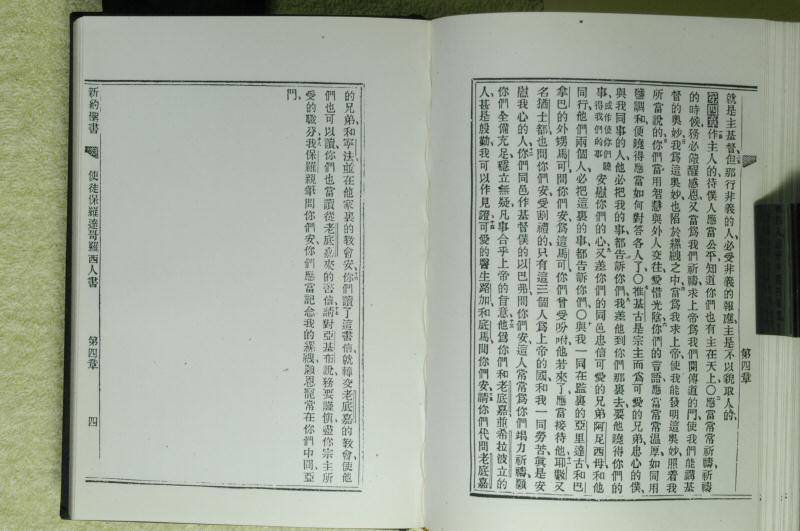 第四章
就是主基督但那行非義的人必受非義的報應主是不以貌取人的
第四章作主人的待僕人應當公平知道你們也有主在天上〇應當常常祈禱祈禱
的時候務必儆醒感恩又當爲我們祈禱求上帝爲我們開傳道的門使我們能講基
督的奧妙我爲這奧妙也陷於縲絏之中當爲我求上帝使我能發明這奧妙照着我
所當說的你們當用智慧與外人交往愛惜光陰你們的言語應當常常溫厚如同用
鹽調和便曉得應當如何對答各人了〇推基古是宗主而爲可愛的兄弟忠心的僕
與我同事的人他必把我的事都告訴你們我差他到你們那裏去要他曉得你們的
事或作使你們曉得我們的事安慰你們的心又差你們的同邑忠信可愛的兄弟阿尼西母和他
同行他們兩個人必把這裏的事都告訴你們〇與我一同在監裏的亞里達古和巴
拿巴的外甥馬可問你們安爲這馬可你們曾受吩咐他若來了應當接待他耶數又
名猶士都也問你們安受割禮的只有這三個人爲上帝的國和我一同勞苦眞是安
慰我心的人你們同邑作基督僕的以巴弗問你們安這人常常爲你們竭力祈禱願
你們全備充足穩立無疑凡事合乎上帝的旨意他爲你們和老底嘉並希拉波立的
人甚是殷勤我可以作見證可愛的醫生路加和底馬問你們安請你們代問老底嘉
的兄弟和寧法並在他家裏的教會安你們讀了這書信就轉交老底嘉的教會使他
們也可以讀你們也當讀從老底嘉來的書信請對亞基布說務要謹愼盡你宗主所
愛的職分我保羅親筆問你們安你們應當記念我的縲絏願恩寵常在你們中間亞
門
新約聖書 使徒保羅達哥羅西人書 第四章 四